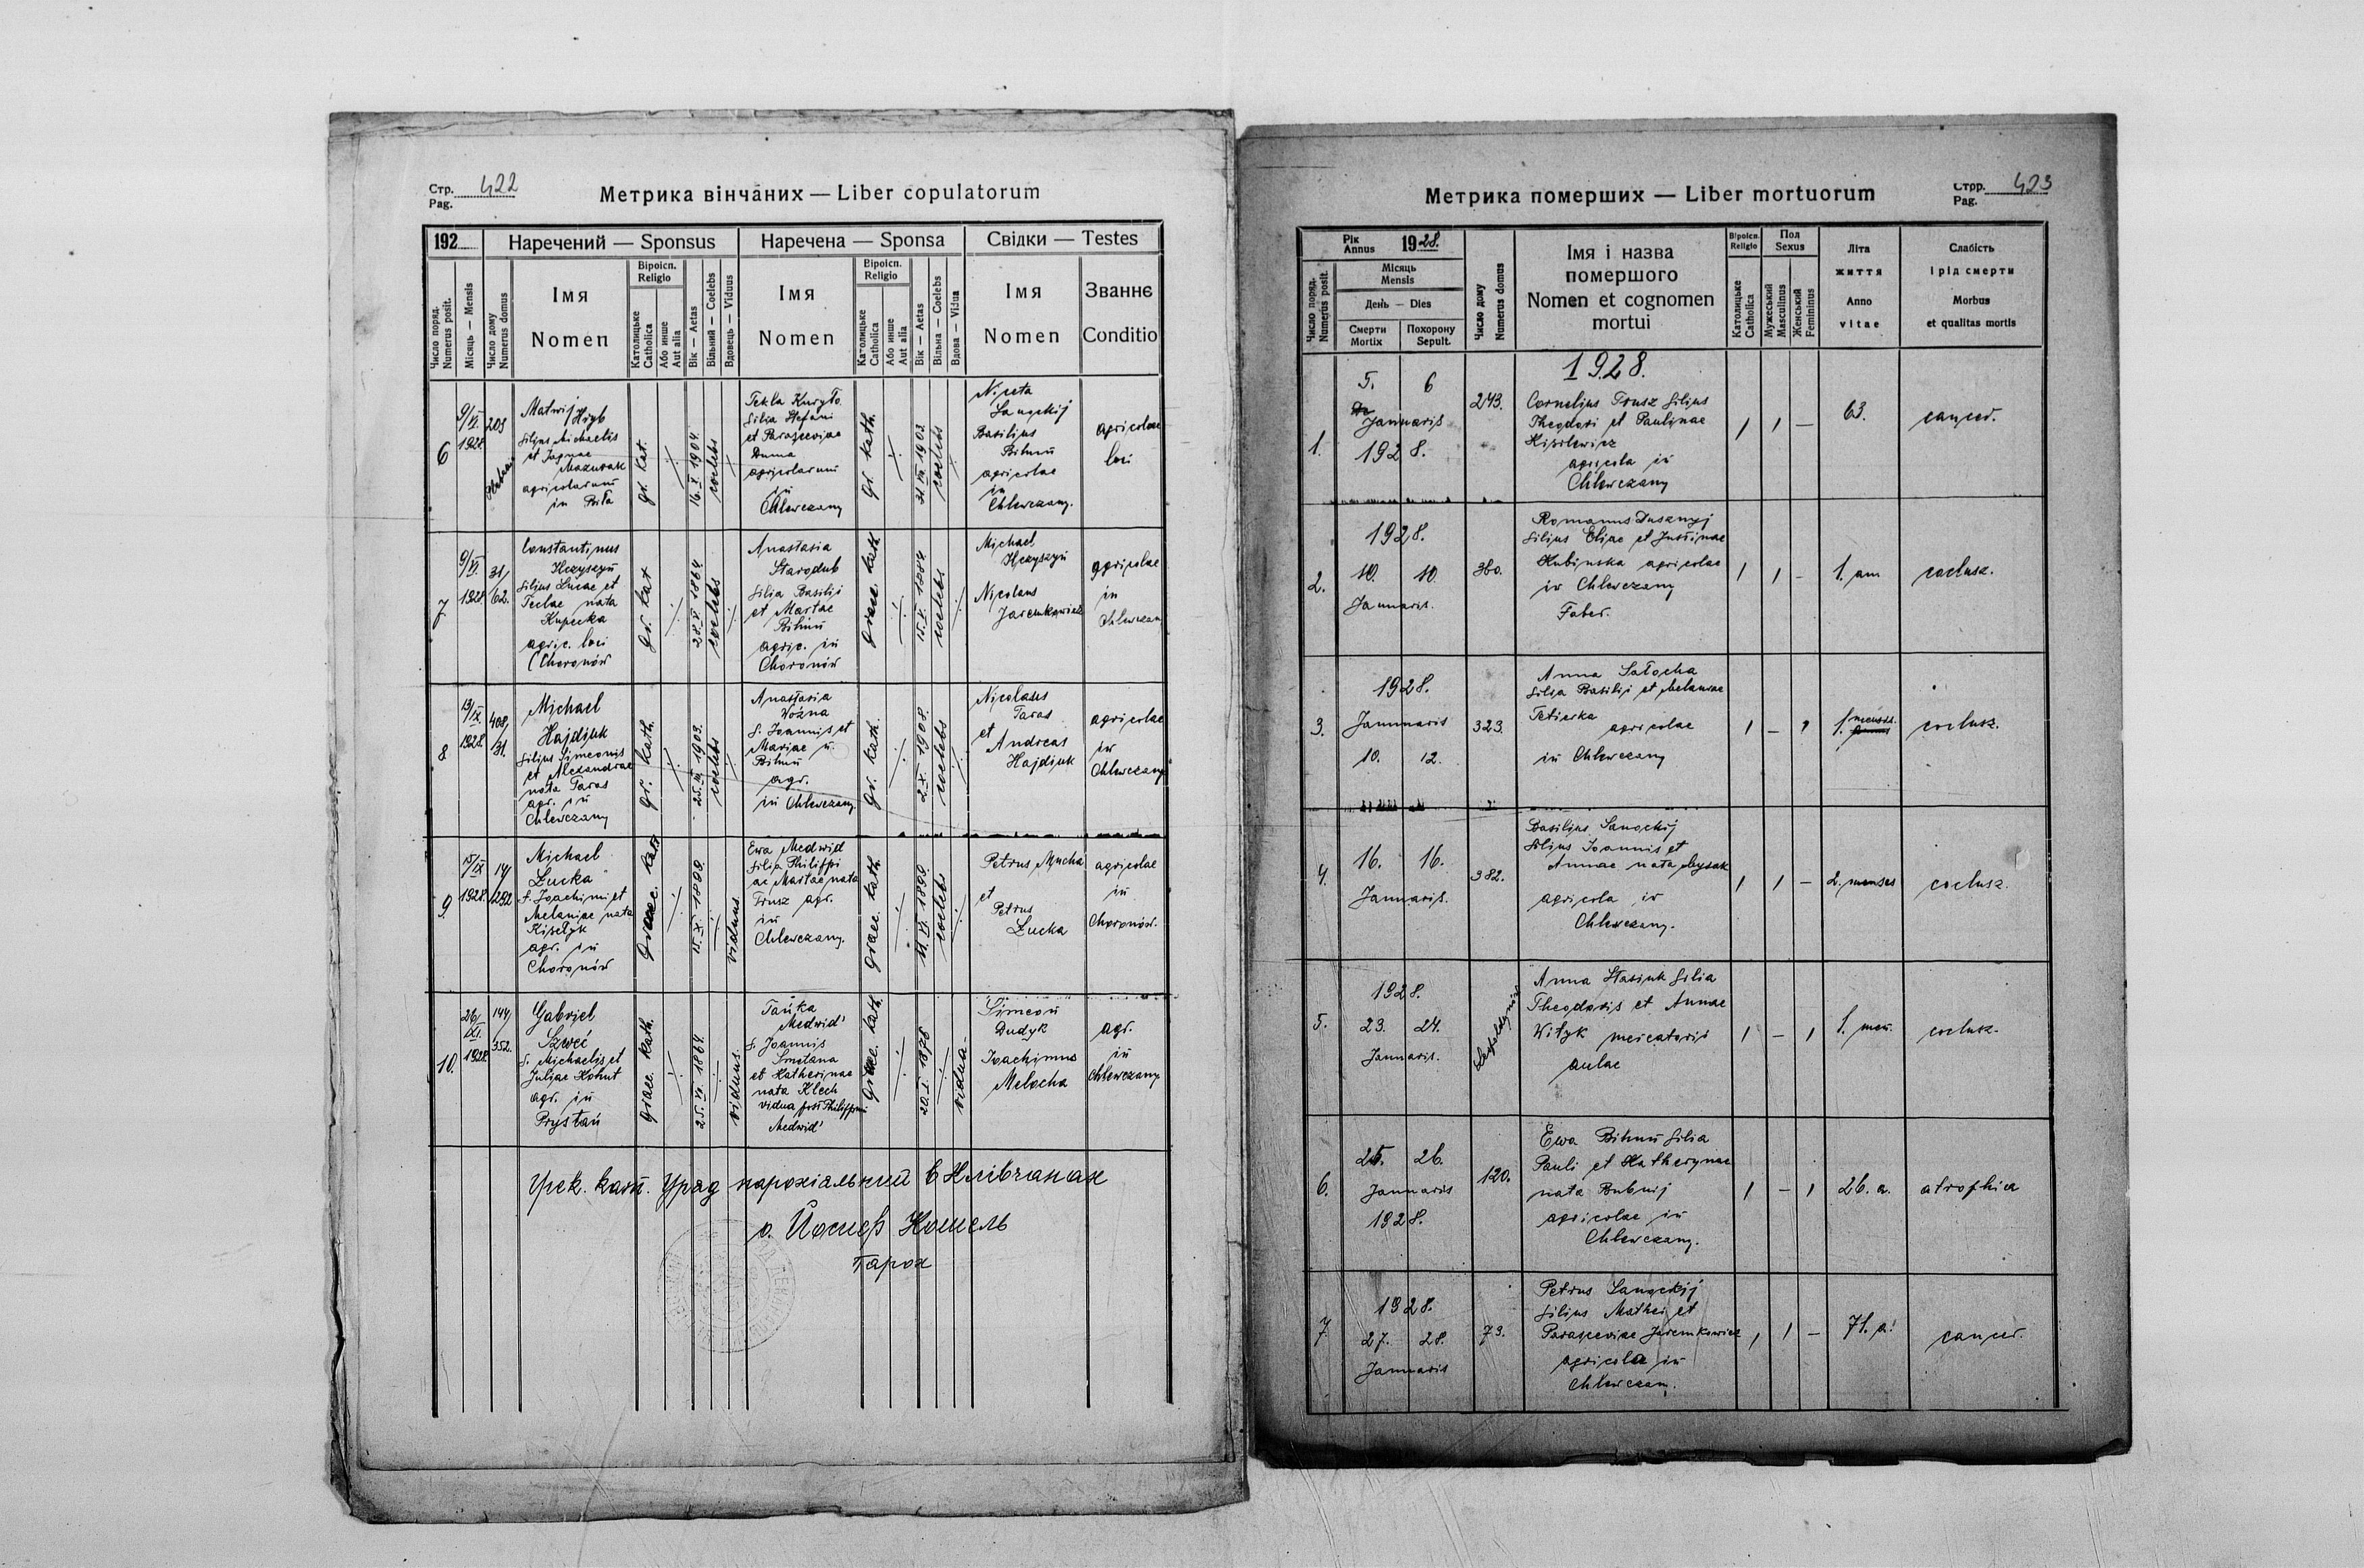 Стр. 422
Pag.
Метрика вінчаних — Liber copulatorum
192
Наречений — Sponsus
Наречена — Sponsa
Свідки — Testes
Число поряд. Numerus posit.
Місяць — Mensis
Число дому Numerus domus
Імя
Nomen
Віроісп.
Religio
Католицьке Catholica
Або инше Aut alia
Вік — Aetas
Вільний — Coelebs
Вдовець — Viduus
Імя
Nomen
Віроісп.
Religio
Католицьке Catholica
Або инше Aut alia
Вік — Aetas
Вільна — Coelebs
Вдова — Vidua
Імя
Nomen
Званнє
Conditio
6
9/VI.
1928.
203
Matwij Hryb
filius Michaelis
et Jagnae
Mazurak
agricolarum
in Biła
gr. kat.
16. V. 1904.
coelebs
Tekla Kuryło
filia Stefani
et Parasceviae
Duma
agricolarum
in
Chlewczany
gr. kath.
1902.
coelebs
Niceta
Sanockij
Basilius
Bihun
agricolae
in
Chlewczany.
agricolae
loci
7
9/VI.
1928.
31/
62.
Constantinus
Hczyszyn
filius Lucae et
Teclae nata
Kupecka
agric. loci
Choronów
gr. kat
1864.
coelebs
Anastasia
Starodub
filia Basilii
et Martae
Bihun
agric. in
Choronów
graec. kath.
1884.
coelebs
Michael
Hczyszyn
Nicolaus
Jaremkowicz
agricolae
in
Chlewczan
8
19/IX.
1928.
408/
31.
Michael
Hajdiuk
filius Simeonis
et Alexandrae
nata Taras
agr. in
Chlewczany
gr. kath.
1903.
coelebs
Anastasia
Woźna
f. Joannis et
Mariae n.
Bihun
agr.
in Chlewczany.
gr. kath.
2. X. 1908.
coelebs
Nicolaus
Taras
et
Andreas
Hajdiuk
agricolae
in
Chlewczany
9.
15/IX
1928.
14/
292
Michael
Łucka
f. Joachimi et
Melaniae nata
Kiselyk
agr. in
Choronów
graec. kath
viduus.
Ewa Medwid
filia Philippi
ac Martae nata
Trusz agr.
in
Chlewczany.
graec. kath.
1890.
coelebs
Petrus Mucha
et
Petrus
Łucka
agricolae
in
Choronów.
10.
26/
1928.
144/
352.
Gabriel
Szweć
f. Michaelis et
Juliae Kohut
agr. in
Prystań
graec. kath.
viduus.
Tańka
Medwid'
f. Joannis
Smetana
et Katherinae
nata Klech
vidua post Philippum
Medwid'
graec. kath.
20. I. 1878
vidua
Simeon
Dudyk
Joachimus
Melocha
agr.
in
Chlewczany
Грек. кат. Уряд парохіяльний в Хлівчанах
о. Йосиф Кошель
Парох
Стор. 423
Pag.
Метрика померших — Liber mortuorum
Рік
Annus 1928.
Число поряд. Numerus posit.
Місяць
Mensis
День — Dies
Смерти
Mortix
Похорону
Sepult.
Число дому
Numerus domus
Імя і назва
помершого
Nomen et cognomen
mortui
Віроісп.
Religio
Католицьке
Catholica
Пол
Sexus
Мужеський
Masculinus
Женський
Femininus
Літа
життя
Anno
vitae
Слабість
і рід смерти
Morbus
et qualitas mortis
1928.
1.
5. 6
Januaris
1928.
243.
Cornelius Trusz filius
Theodori et Paulinae
Kisilewicz
agricola in
Chlewczany
1 1 —
63.
cancer.
2.
1928.
10. 10.
Januaris.
360.
Romanus Dusznyj
filius Eliae et Justinae
Hubinska agricolae
in Chlewczany
Faber.
1 1 -
1. am
coclusz.
3.
1928.
Januaris
10. 12.
323.
Anna Sałocha
filia Basilii et Melaniae
Tetierka
agricolae
in Chlewczany
1 — 1
1. mensis.
coclusz.
4.
16. 16.
Januaris.
382.
Basilius Sanockij
filius Joannis et
Annae nata Mysak
agricola in
Chlewczany.
1 1 —
2. menses
coclusz.
5.
1928.
23. 24.
Januaris.
Anna Stasiuk filia
Theodoris et Annae
Wityk mercatoris
aulae
1 — 1
1. men.
coclusz.
6.
25. 26.
Januaris
1928.
120.
Ewa Bihun filia
Pauli et Katherynae
nata Bubnij
agricolae in
Chlewczany.
1 — 1
26. a.
atrophia
7.
1928.
27. 28.
Januaris
73.
Petrus Sanockij
filius Mathei et
Parasceviae Jaremkowicz
agricola in
Chlewczan.
1 1 —
71. a.
cancer.